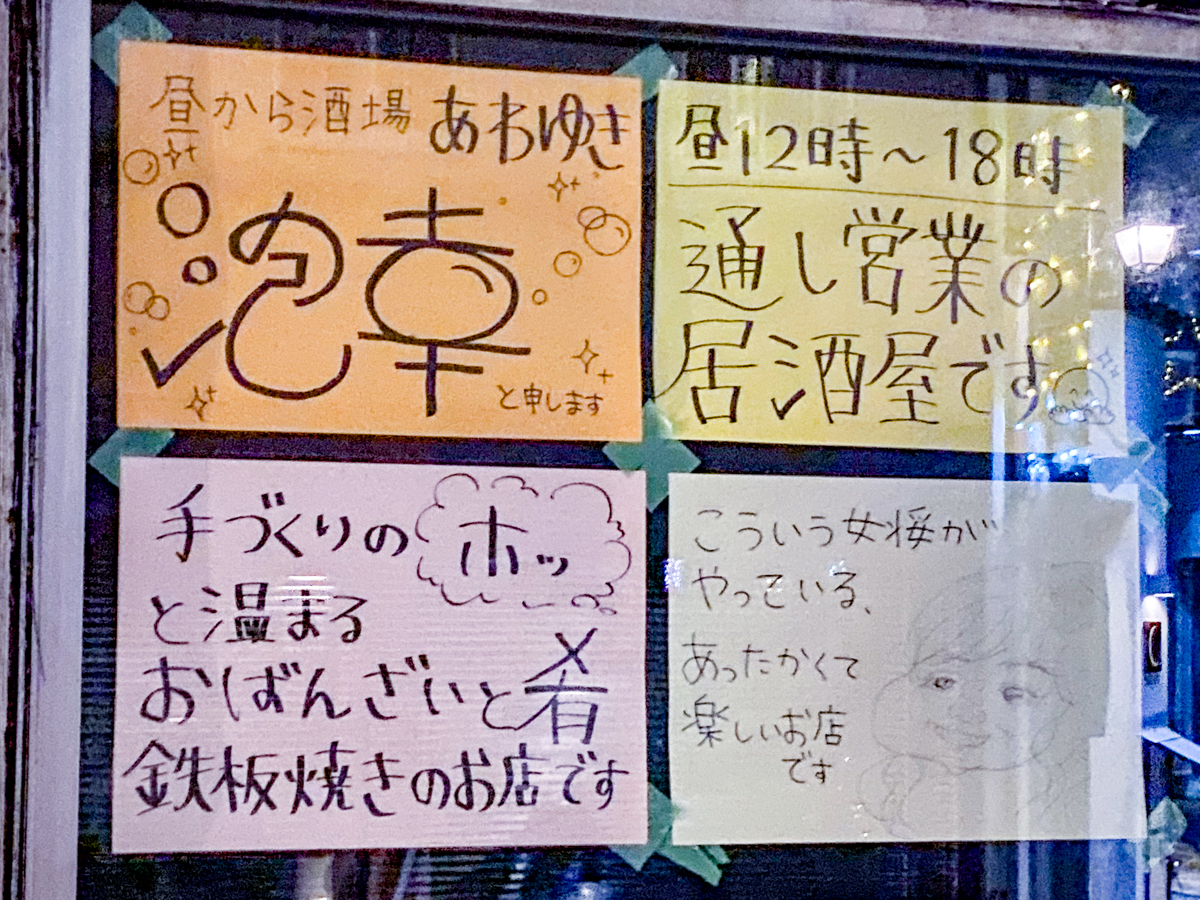 昼から酒場 あわゆき
泡幸
と申します
昼12時~18時
通し営業の
居酒屋です
手づくりのホッ
と温まる
おばんざいと肴
鉄板焼きのお店です
こういう女将が
やっている、
あったかくて
楽しいお店
です